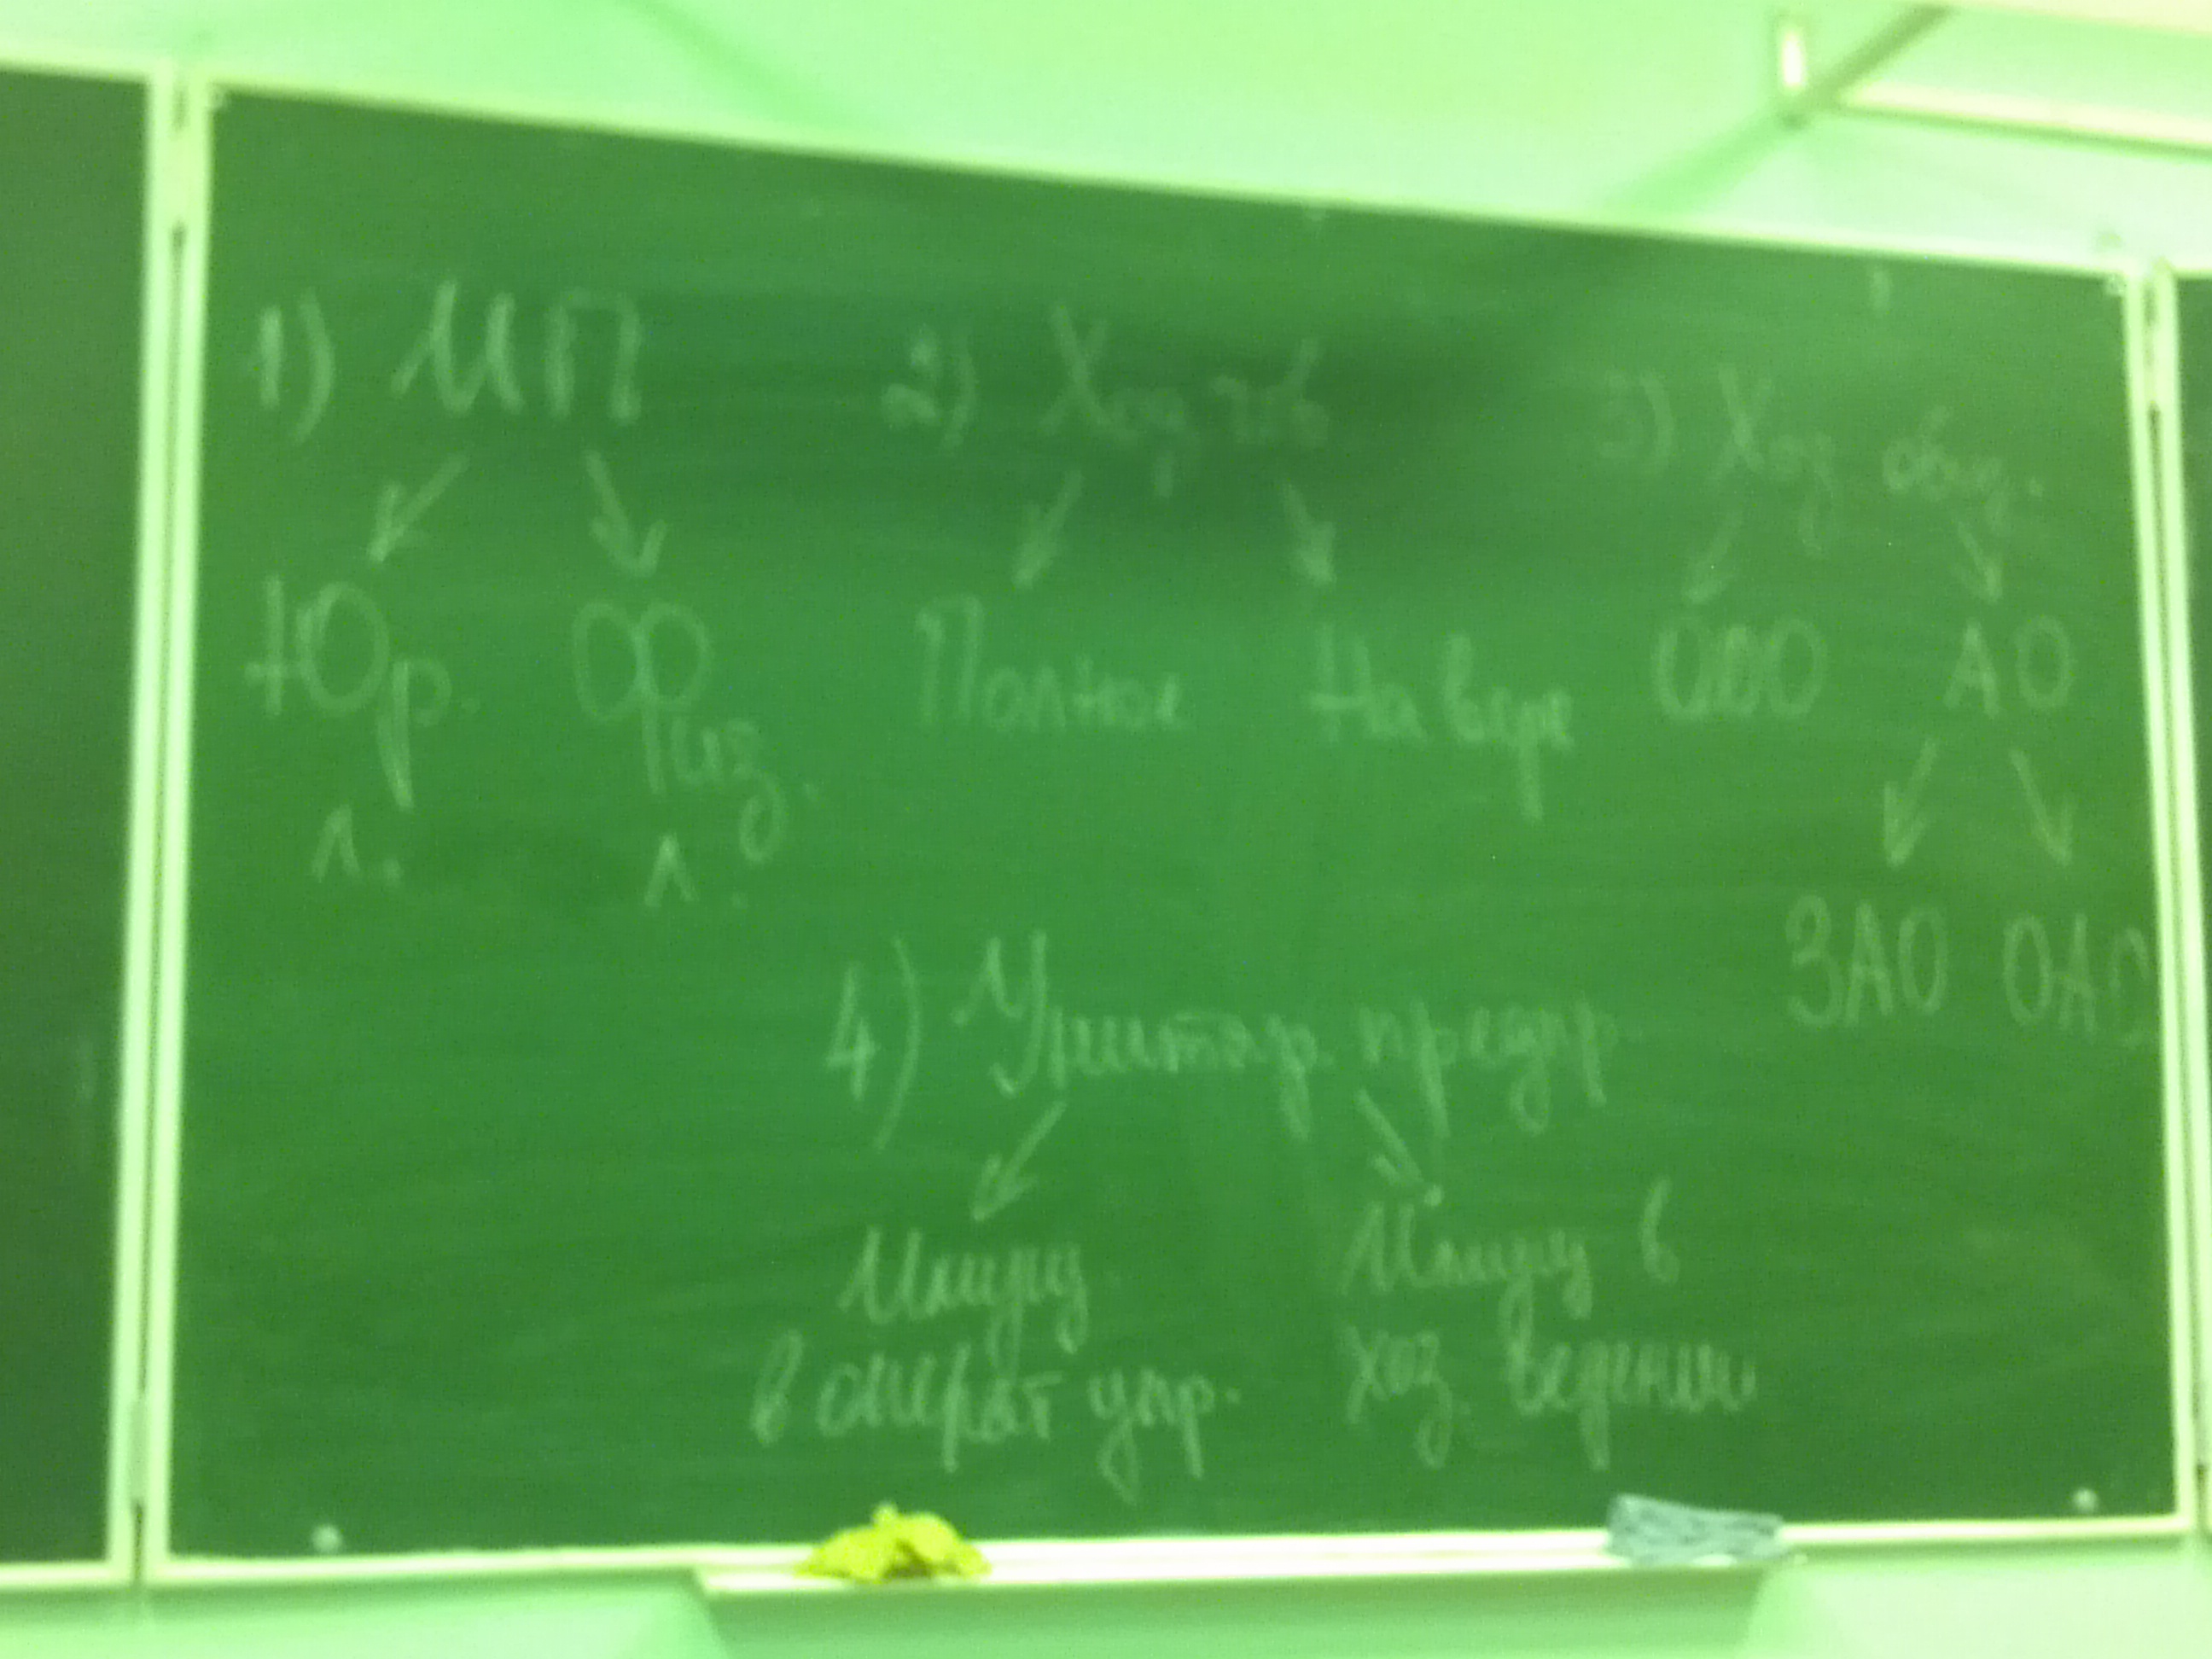 1) ИП
Юр. Физ.
л. л.
2) Хоз тв
Полное На вере
3) Хоз общ.
ООО АО
ЗАО ОАО
4) Унитар. предпр.
Имущ
в операт упр.
Имущ в
хоз. ведении